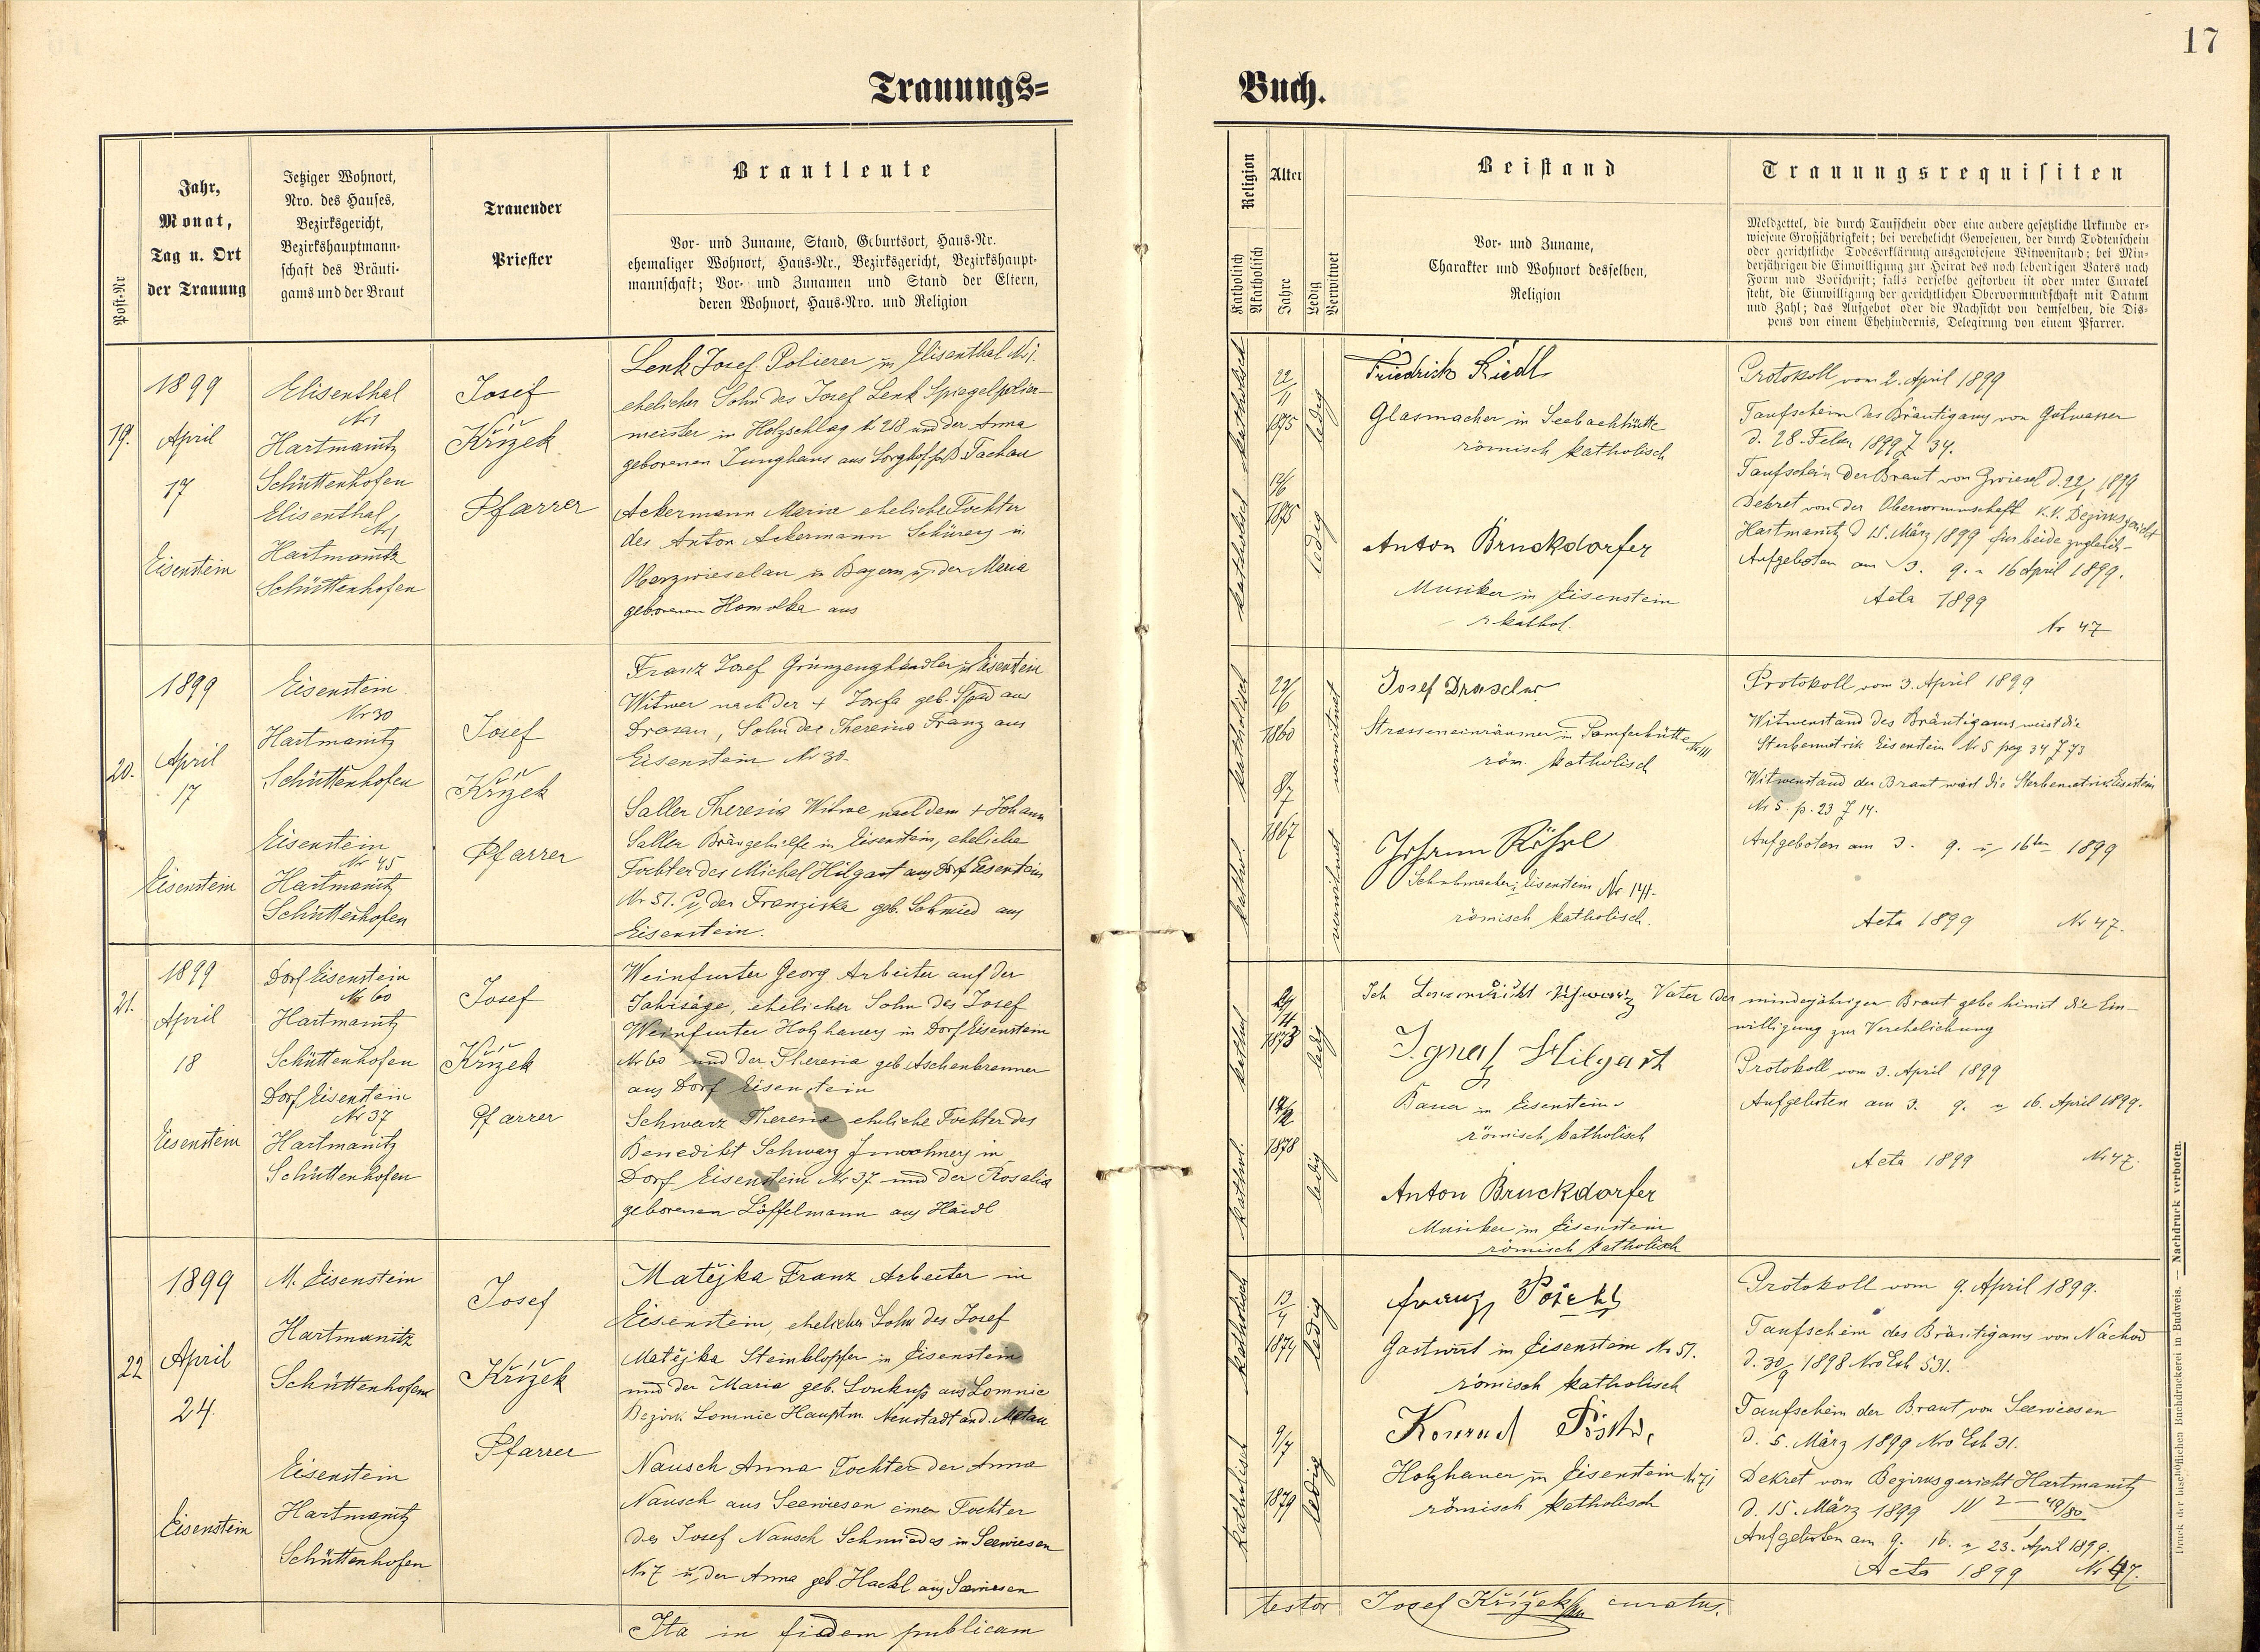 17
Trauungs=
Buch.
Post-Nr
Jahr,
Monat,
Tag u. Ort
der Trauung
Jetziger Wohnort,
Nro. des Hauses,
Bezirksgericht,
Bezirkshauptmann-
schaft des Bräuti-
gams und der Braut
Trauender
Priester
Brautleute
Vor- und Zuname, Stand, Geburtsort, Haus-Nr.
ehemaliger Wohnort, Haus-Nr., Bezirksgericht, Bezirkshaupt-
mannschaft; Vor- und Zunamen und Stand der Eltern,
deren Wohnort, Haus-Nro. und Religion
Religion
Katholisch
Akatholisch
Alter
Jahre
Ledig
Verwitwet
Beistand
Vor- und Zuname,
Charakter und Wohnort desselben,
Religion
Trauungsrequisiten
Meldzettel, die durch Taufschein oder eine andere gesetzliche Urkunde er-
wiesene Großjährigkeit; bei verehelicht Gewesenen, der durch Todtenschein
oder gerichtliche Todeserklärung ausgewiesene Witwenstand; bei Min-
derjährigen die Einwilligung zur Heirat des noch lebendigen Vaters nach
Form und Vorschrift; falls derselbe gestorben ist oder unter Curatel
steht, die Einwilligung der gerichtlichen Obervormundschaft mit Datum
und Zahl; das Aufgebot oder die Nachsicht von demselben, die Dis-
pens von einem Ehehindernis, Delegirung von einem Pfarrer.
19.
1899
April
17
Eisenstein
Elisenthal
Nr 1
Hartmanitz
Schüttenhofen
Elisenthal
Nr 1
Hartmanitz
Schüttenhofen
Josef
Křížek
Pfarrer
Lenk Josef Polierer in Elisenthal Nr 1.
ehelicher Sohn des Josef Lenk Spiegelpolier-
meister in Holzschlag N 218 und der Anna
geborenen Junghans aus Sorghof Tachau
Ackermann Maria eheliche Tochter
des Anton Ackermann Schürers in
Oberzwieselau in Bayern u der Maria
geborenen Homolka aus
katholisch
22/11
1875
ledig
katholisch
1875
ledig
Friedrich Riedl
Glasmacher in Seebachhütte
römisch katholisch
Anton Bruckdorfer
Musiker in Eisenstein
r kathol.
Protokoll vom 2. April 1899
Taufschein des Bräutigams von Gutwasser
d. 28. Feber 1899 Z 34.
Taufschein der Braut von Zwiesel d. 22/1 1899
Dekret von der Obervormunschaft k.k. Bezirksgericht
Hartmanitz d 15. März 1899 für beide zugleich-
Aufgeboten am 3. 9. u 16 April 1899.
Acta 1899
Nr 47
20.
1899
April
17
Eisenstein
Eisenstein
Nr 30
Hartmanitz
Schüttenhofen
Eisenstein
Nr 45
Hartmanitz
Schüttenhofen
Josef
Křížek
Pfarrer
Franz Josef Grünzeughändler in Eisenstein
Witwer nach der + Josefa geb. aus
Drosau, Sohn der Theresia Franz aus
Eisenstein Nr 30.
Saller Theresia Witwe nach dem + Johann
Saller Bräugehilfe in Eisenstein, eheliche
Tochter des Michel Hilgart aus Dorf Eisenstein
Nr 51. u der Franziska geb. Schmied aus
Eisenstein.
katholisch
1860
verwitwet
kathol.
8/7
1867
verwitwet
Josef
Strasseneinräumer in
röm. katholisch
Johann Röhrl
Schuhmacher Eisenstein Nr 141.
römisch katholisch.
Protokoll vom 3. April 1899
Witwenstand des Bräutigams weist die
Sterbematrik Eisenstein Nr 5 pag 34 Z 73
Witwenstand der Braut weist die Sterbematrik Eisenstein
Nr 5. p. 23 Z 14.
Aufgeboten am 3. 9. u 16ten 1899
Acta 1899 Nr 47.
21.
1899
April
18
Eisenstein
Dorf Eisenstein
Nr 60
Hartmanitz
Schüttenhofen
Dorf Eisenstein
Nr 37
Hartmanitz
Schüttenhofen
Josef
Křížek
Pfarrer
Weinfurter Georg Arbeiter auf der
ehelicher Sohn des Josef
Weinfurter Holzhauers in Dorf Eisenstein
Nr 60 und der Theresia geb Aschenbrenner
aus Dorf Eisenstein
Schwarz Theresia eheliche Tochter des
Benedikt Schwarz Inwohners in
Dorf Eisenstein Nr 37 und der Rosalia
geborenen Löffelmann aus Haidl
kathol
1873
ledig
kathol.
1878
ledig
Ich Vater der minderjährigen Braut gebe hiemit die Ein-
willigung zur Verehelichung
Ignatz Hilgart
Bauer in Eisenstein
römisch katholisch
Anton Bruckdorfer
Musiker in Eisenstein
römisch katholisch
Protokoll vom 3. April 1899
Aufgeboten am 3. 9. u 16. April 1899.
Acta 1899 Nr 47.
22
1899
April
24.
Eisenstein
M. Eisenstein
Hartmanitz
Schüttenhofen
Eisenstein
Hartmanitz
Schüttenhofen
Josef
Křížek
Pfarrer
Matějka Franz Arbeiter in
Eisenstein, ehelicher Sohn des Josef
Matějka Steinklopfer in Eisenstein
und der Maria geb. aus Lomnic
Bezirk Lomnic Hauptm. Neustadt and. Mettau
Nausch Anna Tochter der Anna
Nausch aus Seewiesen einer Tochter
des Josef Nausch Schmiedes in Seewiesen
Nr 7 u der Anna geb. Hackl aus Seewiesen
katholisch
13/4
1874
ledig
katholisch
9/7
1879
ledig
Franz
Gastwirt in Eisenstein Nr 51.
römisch katholisch
Konrad
Holzhauer in Eisenstein
römisch katholisch
Protokoll vom 9. April 1899.
Taufschein des Bräutigams von Nachod
d. 30/9 1898 Nro Exh 531.
Taufschein der Braut von Seewiesen
d. 5. März 1899 Nro Exh 31.
Dekret vom Bezirksgericht Hartmanitz
d. 15. März 1899 IV 2 - 49/80
Aufgeboten am 9. 16. u 23. April 1899.
Acta 1899 Nr 47.
Ita in fidem publicam
testor Josef Křížek curatus.
Druck der bischöflichen Buchdruckerei in Budweis. — Nachdruck verboten.